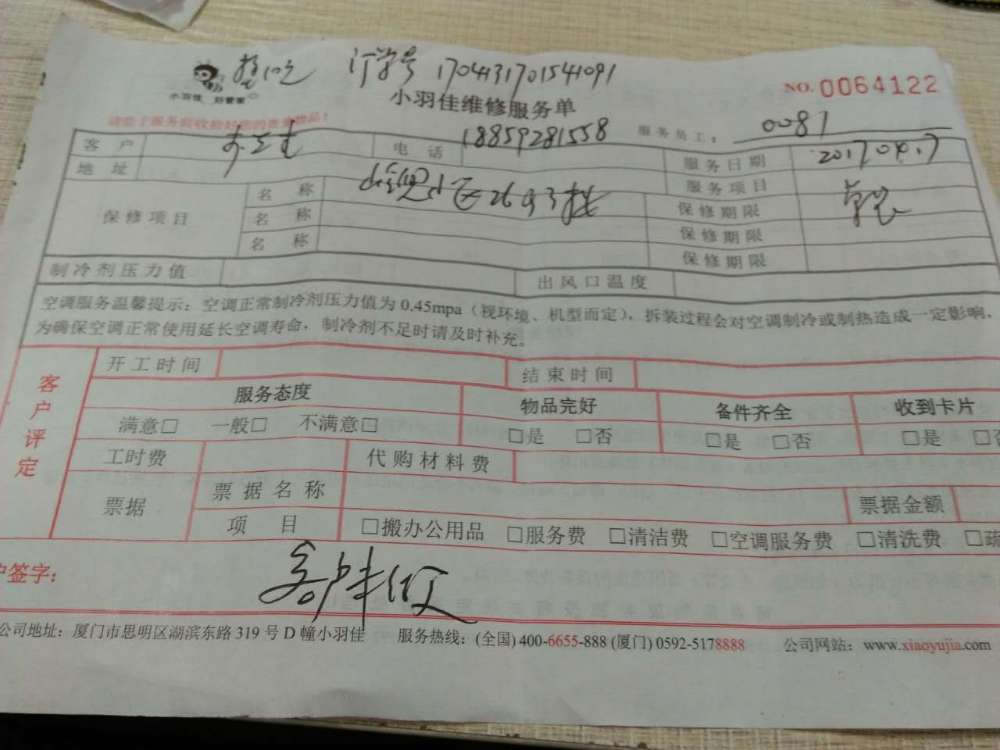 订单号 1704131701541091
小羽佳 好管家
小羽佳维修服务单
NO. 0064122
客户 电话 18859281558 服务员工: 0081
地址 服务日期 2017 04.7
保修项目 名称 服务项目
名称 保修期限
名称 保修期限
保修期限
制冷剂压力值 出风口温度
空调服务温馨提示:空调正常制冷剂压力值为0.45mpa(视环境、机型而定),拆装过程会对空调制冷或制热造成一定影响,
为确保空调正常使用延长空调寿命,制冷剂不足时请及时补充。
客户评定
开工时间 结束时间
服务态度 物品完好 备件齐全 收到卡片
满意□ 一般□ 不满意□ □是 □否 □是 □否 □是 □否
工时费 代购材料费
票据 票据名称 票据金额
项目 □搬办公用品 □服务费 □清洁费 □空调服务费 □清洗费 □疏
户签字:
公司地址:厦门市思明区湖滨东路 319 号 D 幢小羽佳 服务热线:(全国) 400-6655-888 (厦门) 0592-5178888 公司网站:www.xiaoyujia.com